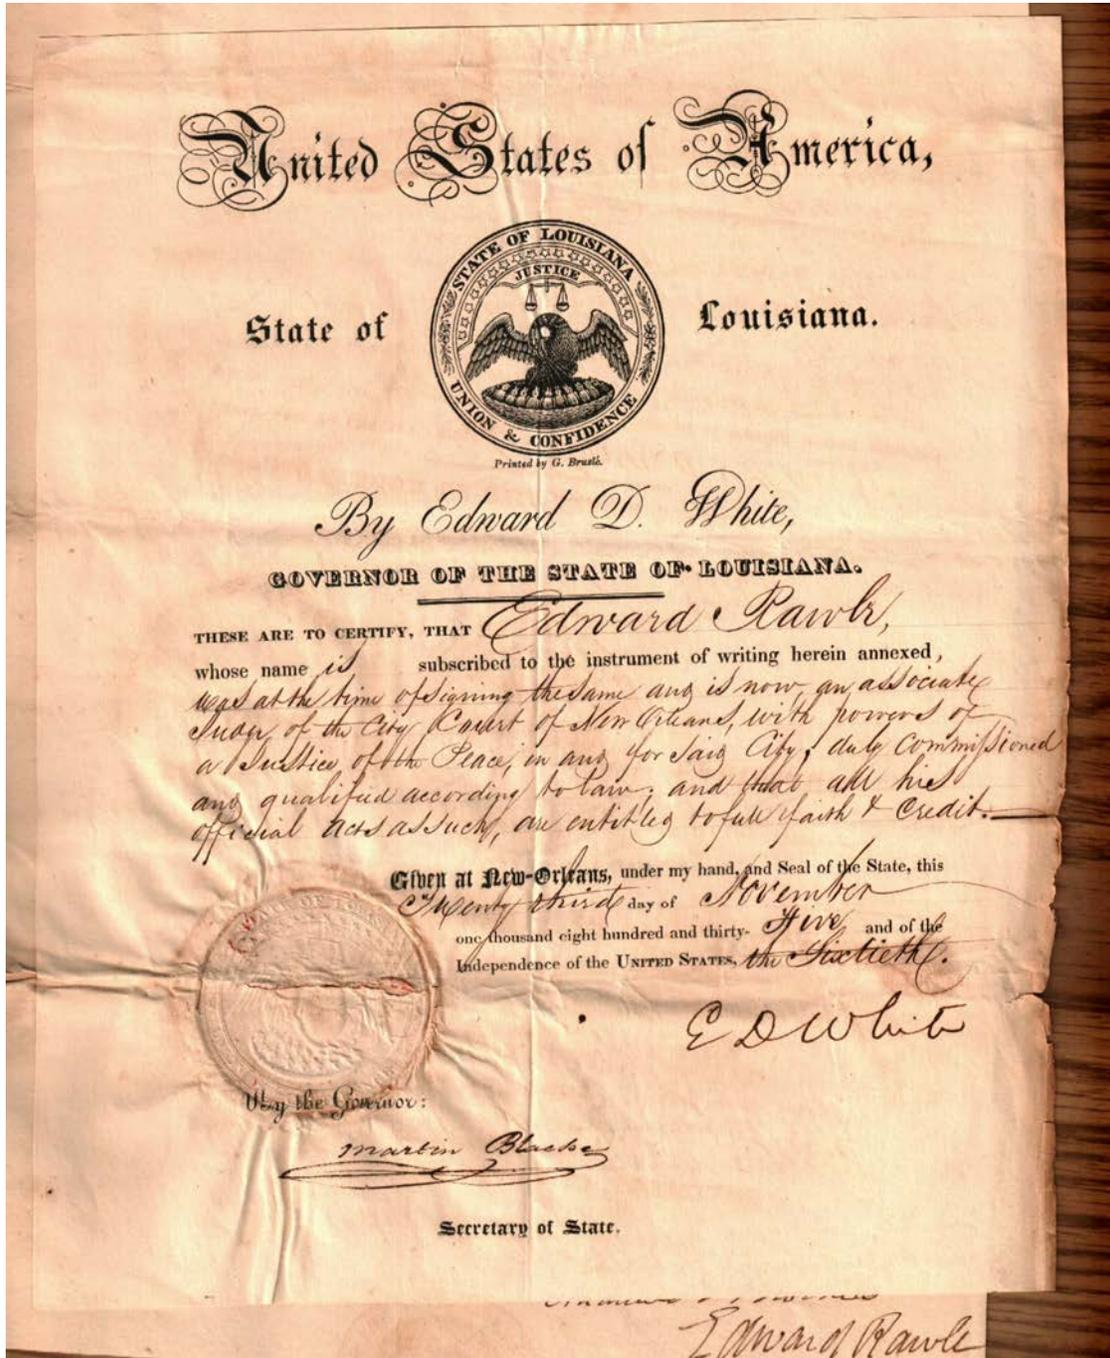 United States of America,
STATE OF LOUISIANA
JUSTICE
State of Louisiana.
UNION & CONFIDENCE
Printed by G. Bruslé.
By Edward D. White,
GOVERNOR OF THE STATE OF LOUISIANA.
THESE ARE TO CERTIFY, THAT Edward Rawle,
whose name is subscribed to the instrument of writing herein annexed,
was at the time of signing the same and is now, an associate
Judge, of the City Court of New Orleans, with powers of
a Justice of the Peace, in and for said City, duly commissioned
and qualified according to law; and that all his
official acts as such, are entitled to full faith & credit.
Given at New-Orleans, under my hand, and Seal of the State, this
Twenty third day of November
one thousand eight hundred and thirty- Five and of the
Independence of the UNITED STATES, the Sixtieth.
E D White
By the Governor:
Martin Blache
Secretary of State.
Edward Rawle